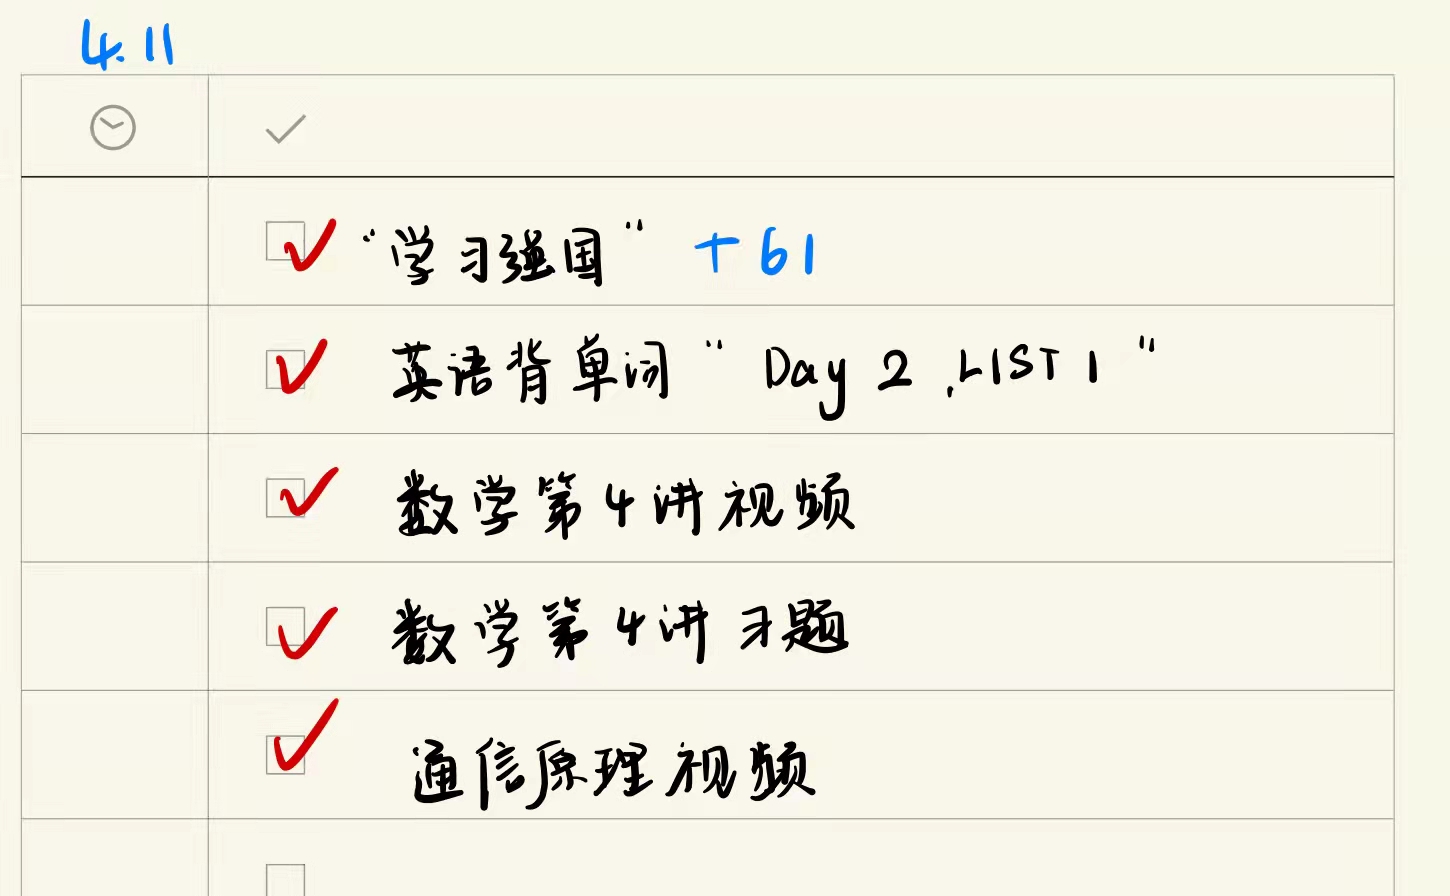 4.11
“学习强国” +61
英语背单词 “Day 2, LIST 1”
数学第4讲视频
数学第4讲习题
通信原理视频